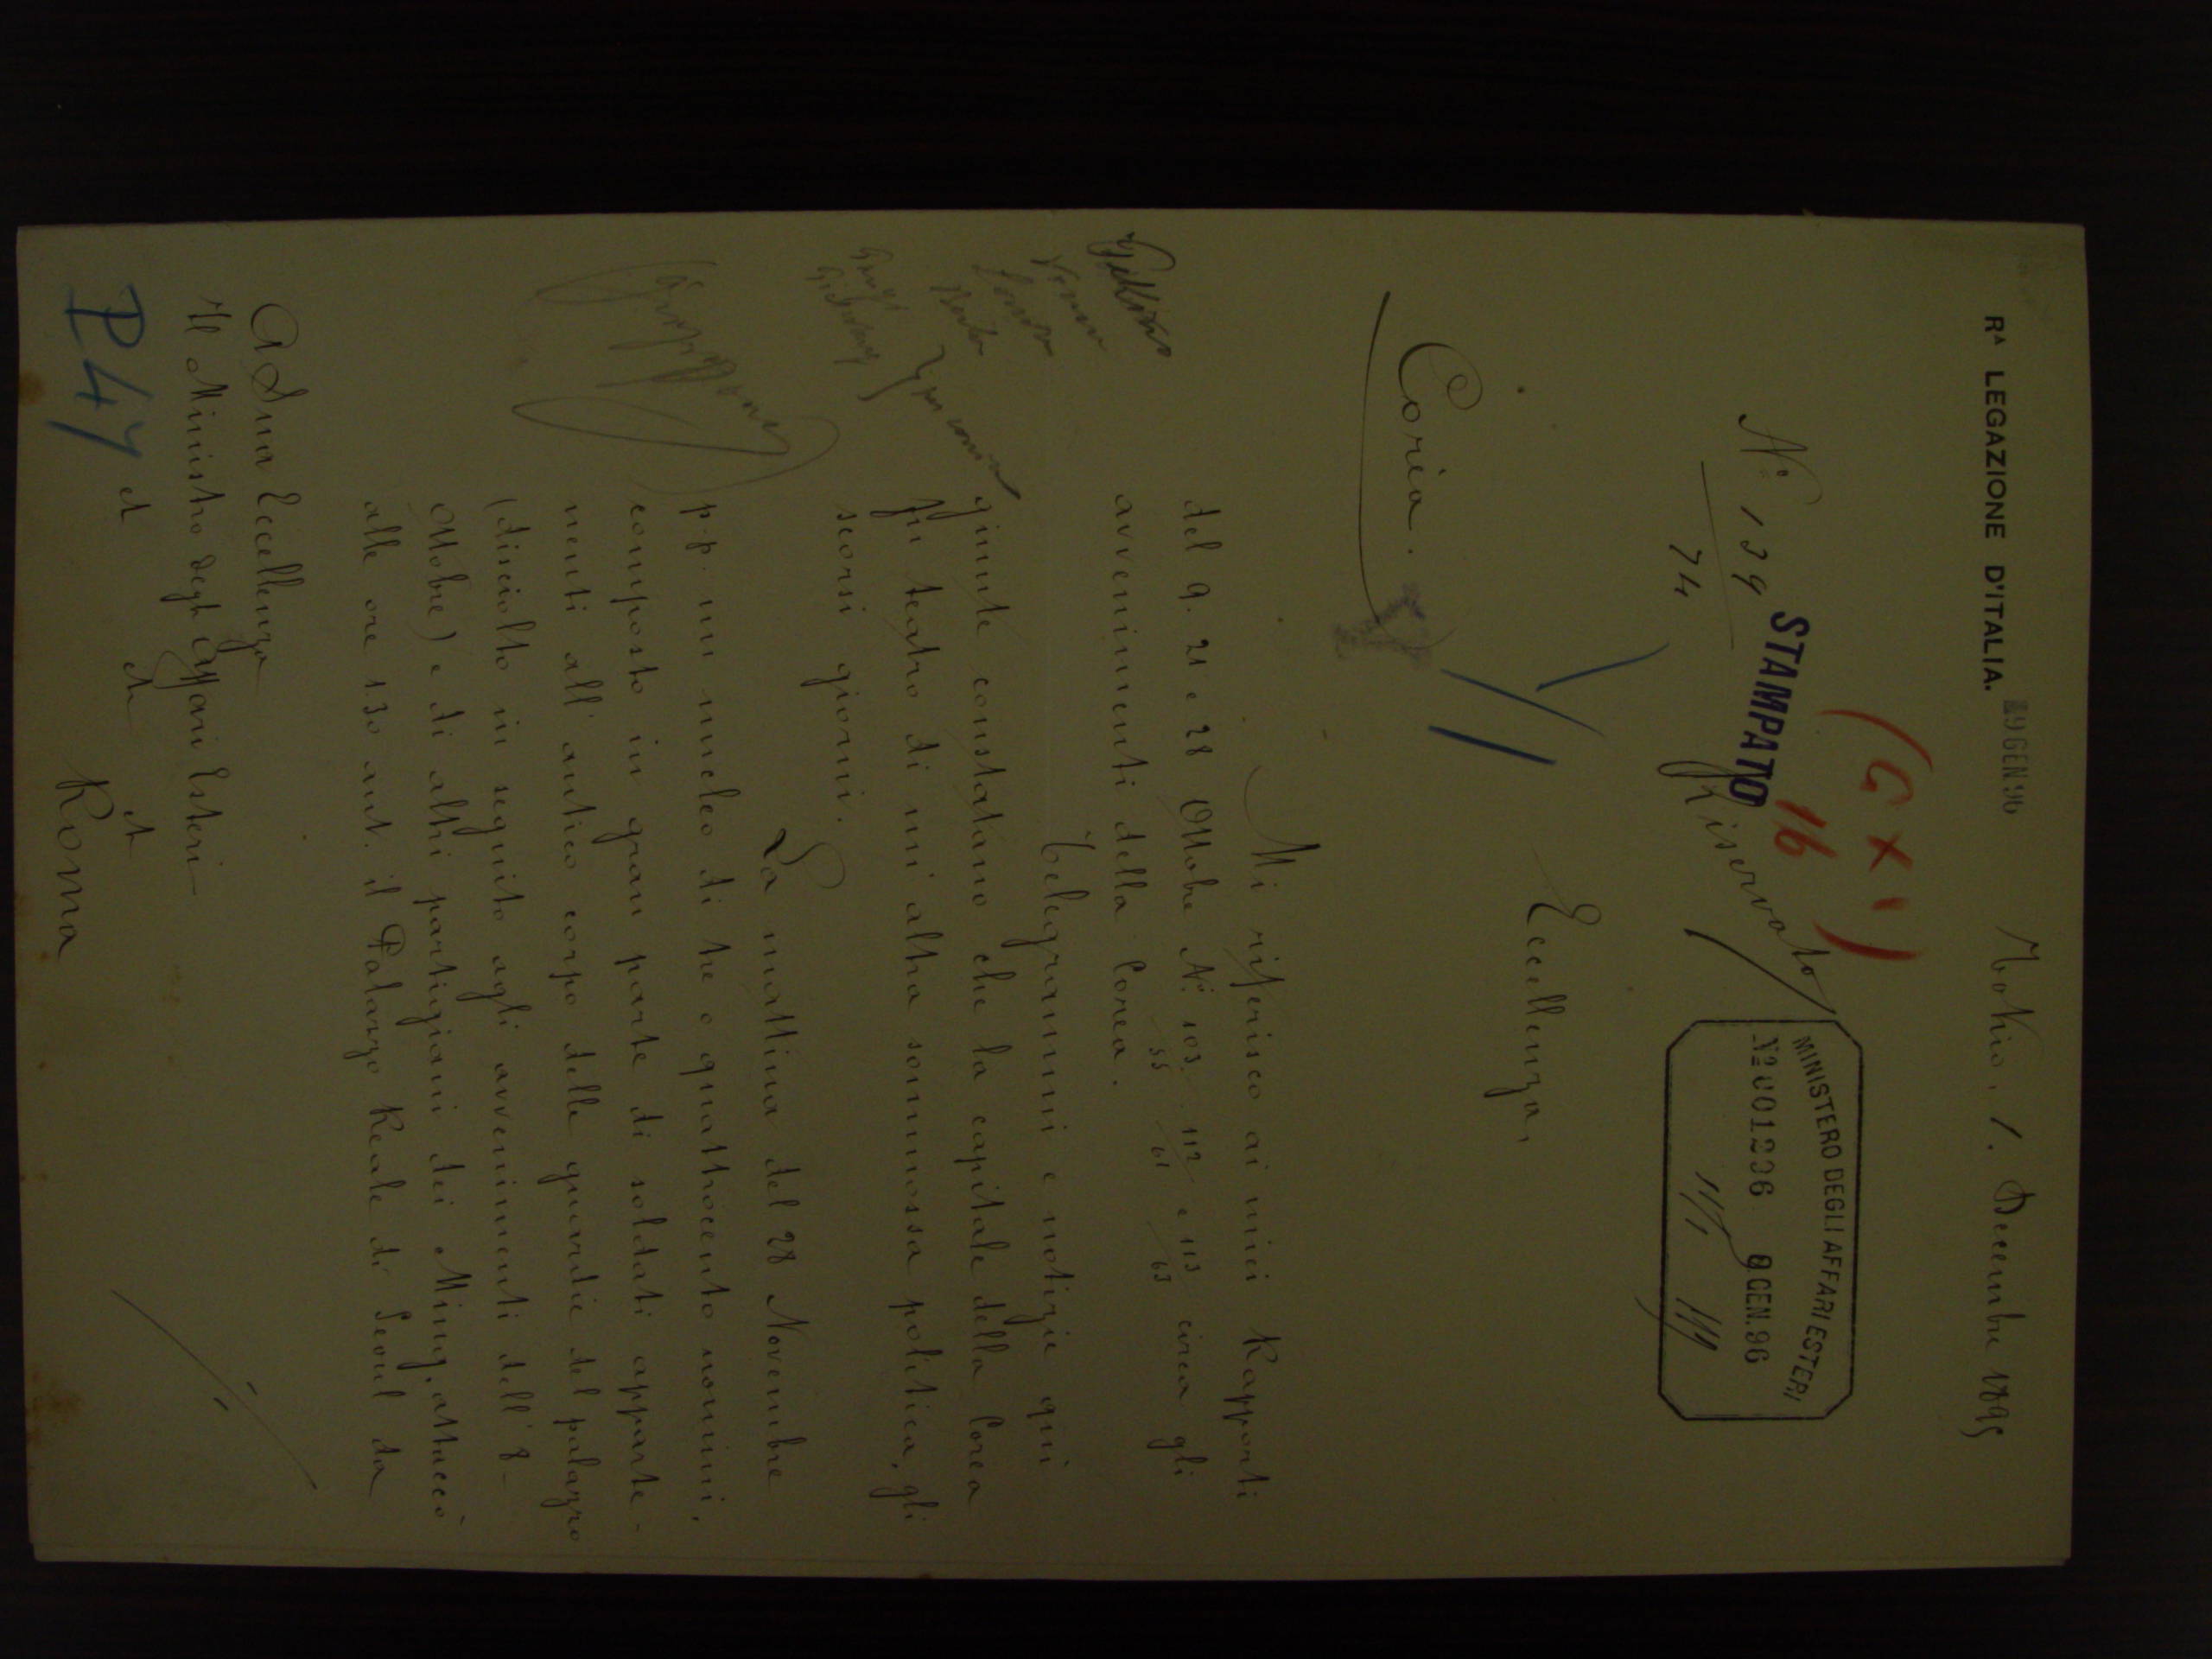 Rᴬ LEGAZIONE D'ITALIA.
19 GEN 96
Tokio, 1. Decembre 1895
(G X I)
16
N° 139
74
STAMPATO
Riservato
MINISTERO DEGLI AFFARI ESTERI
Nº 001236 9 GEN. 96
Eccellenza,
Corèa.
Mi riferisco ai miei Rapporti
del 9. 21 e 28 Ottobre Ni 103. 112 e 113 circa gli
55 61 63
avvenimenti della Corea.
Telegrammi e notizie qui
giunte constatano che la capitale della Corea
fu teatro di un' altra sommossa politica, gli
scorsi giorni.
La mattina del 28 Novembre
p.p. un nucleo di tre o quattrocento uomini,
composto in gran parte di soldati apparte-
nenti all' antico corpo delle guardie del palazzo
(disciolto in seguito agli avvenimenti dell' 8-
Ottobre) e di altri partigiani dei Ming, attaccò
alle ore 1.30 ant. il Palazzo Reale di Seoul da
Pekino
Londra
Berlino
A Sua Eccellenza
Il Ministro degli Affari Esteri
et et et
Roma
P 47